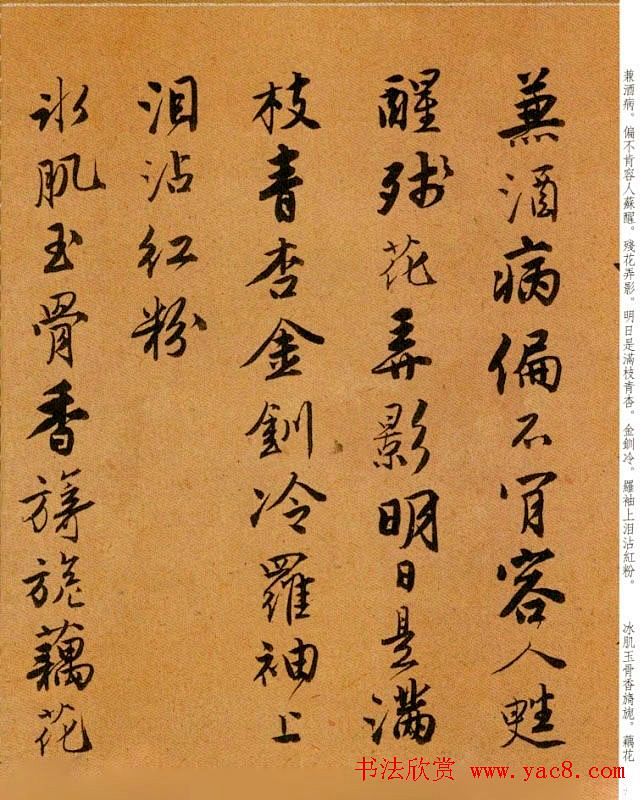 兼酒病偏不肯容人甦
醒残花弄影明日是滿
枝青杏金釧冷羅袖上
泪沾紅粉
冰肌玉骨香旖旎藕花
兼酒病。偏不肯容人蘇醒。殘花弄影。明日是滿枝青杏。金釧冷。羅袖上泪沾紅粉。
冰肌玉骨香旖旎。藕花
书法欣赏 www.yac8.com